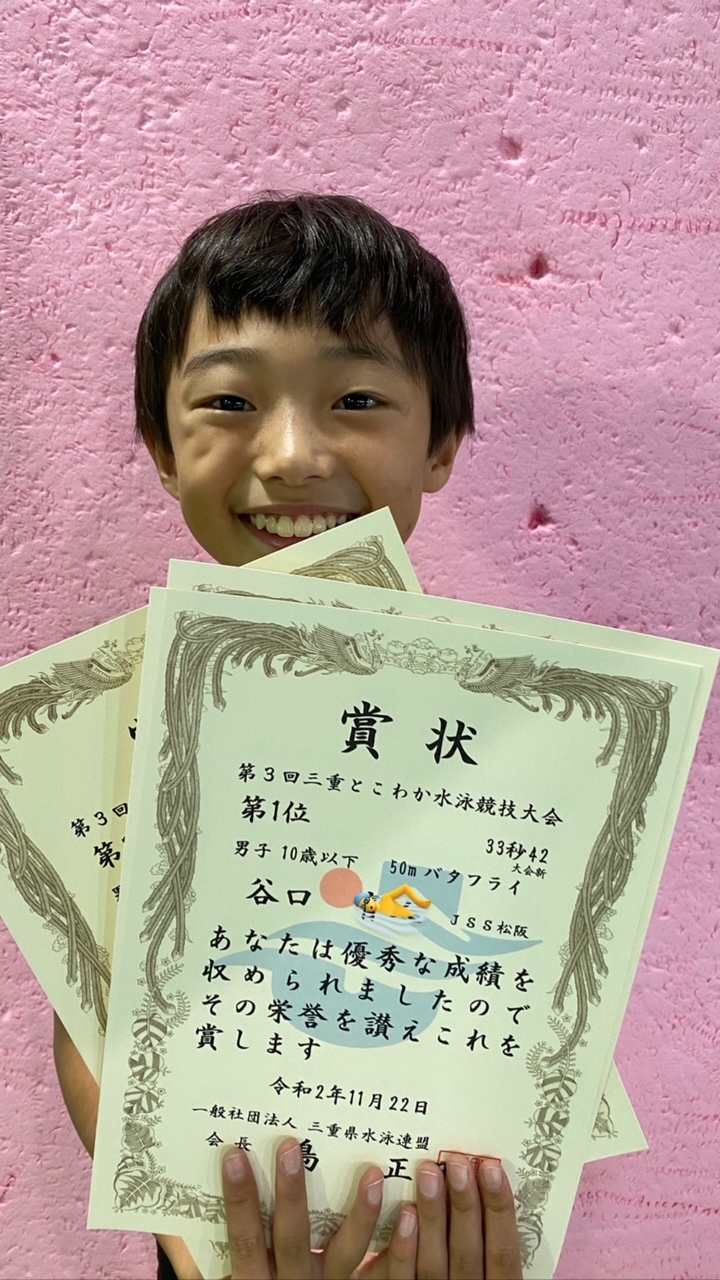 賞状
第3回三重とこわか水泳競技大会
第1位
33秒42
大会新
男子 10歳以下
50m バタフライ
谷口
JSS松阪
あなたは優秀な成績を
収められましたので
その栄誉を讃えこれを
賞します
令和2年11月22日
一般社団法人 三重県水泳連盟
会長
島 正
第3回
第